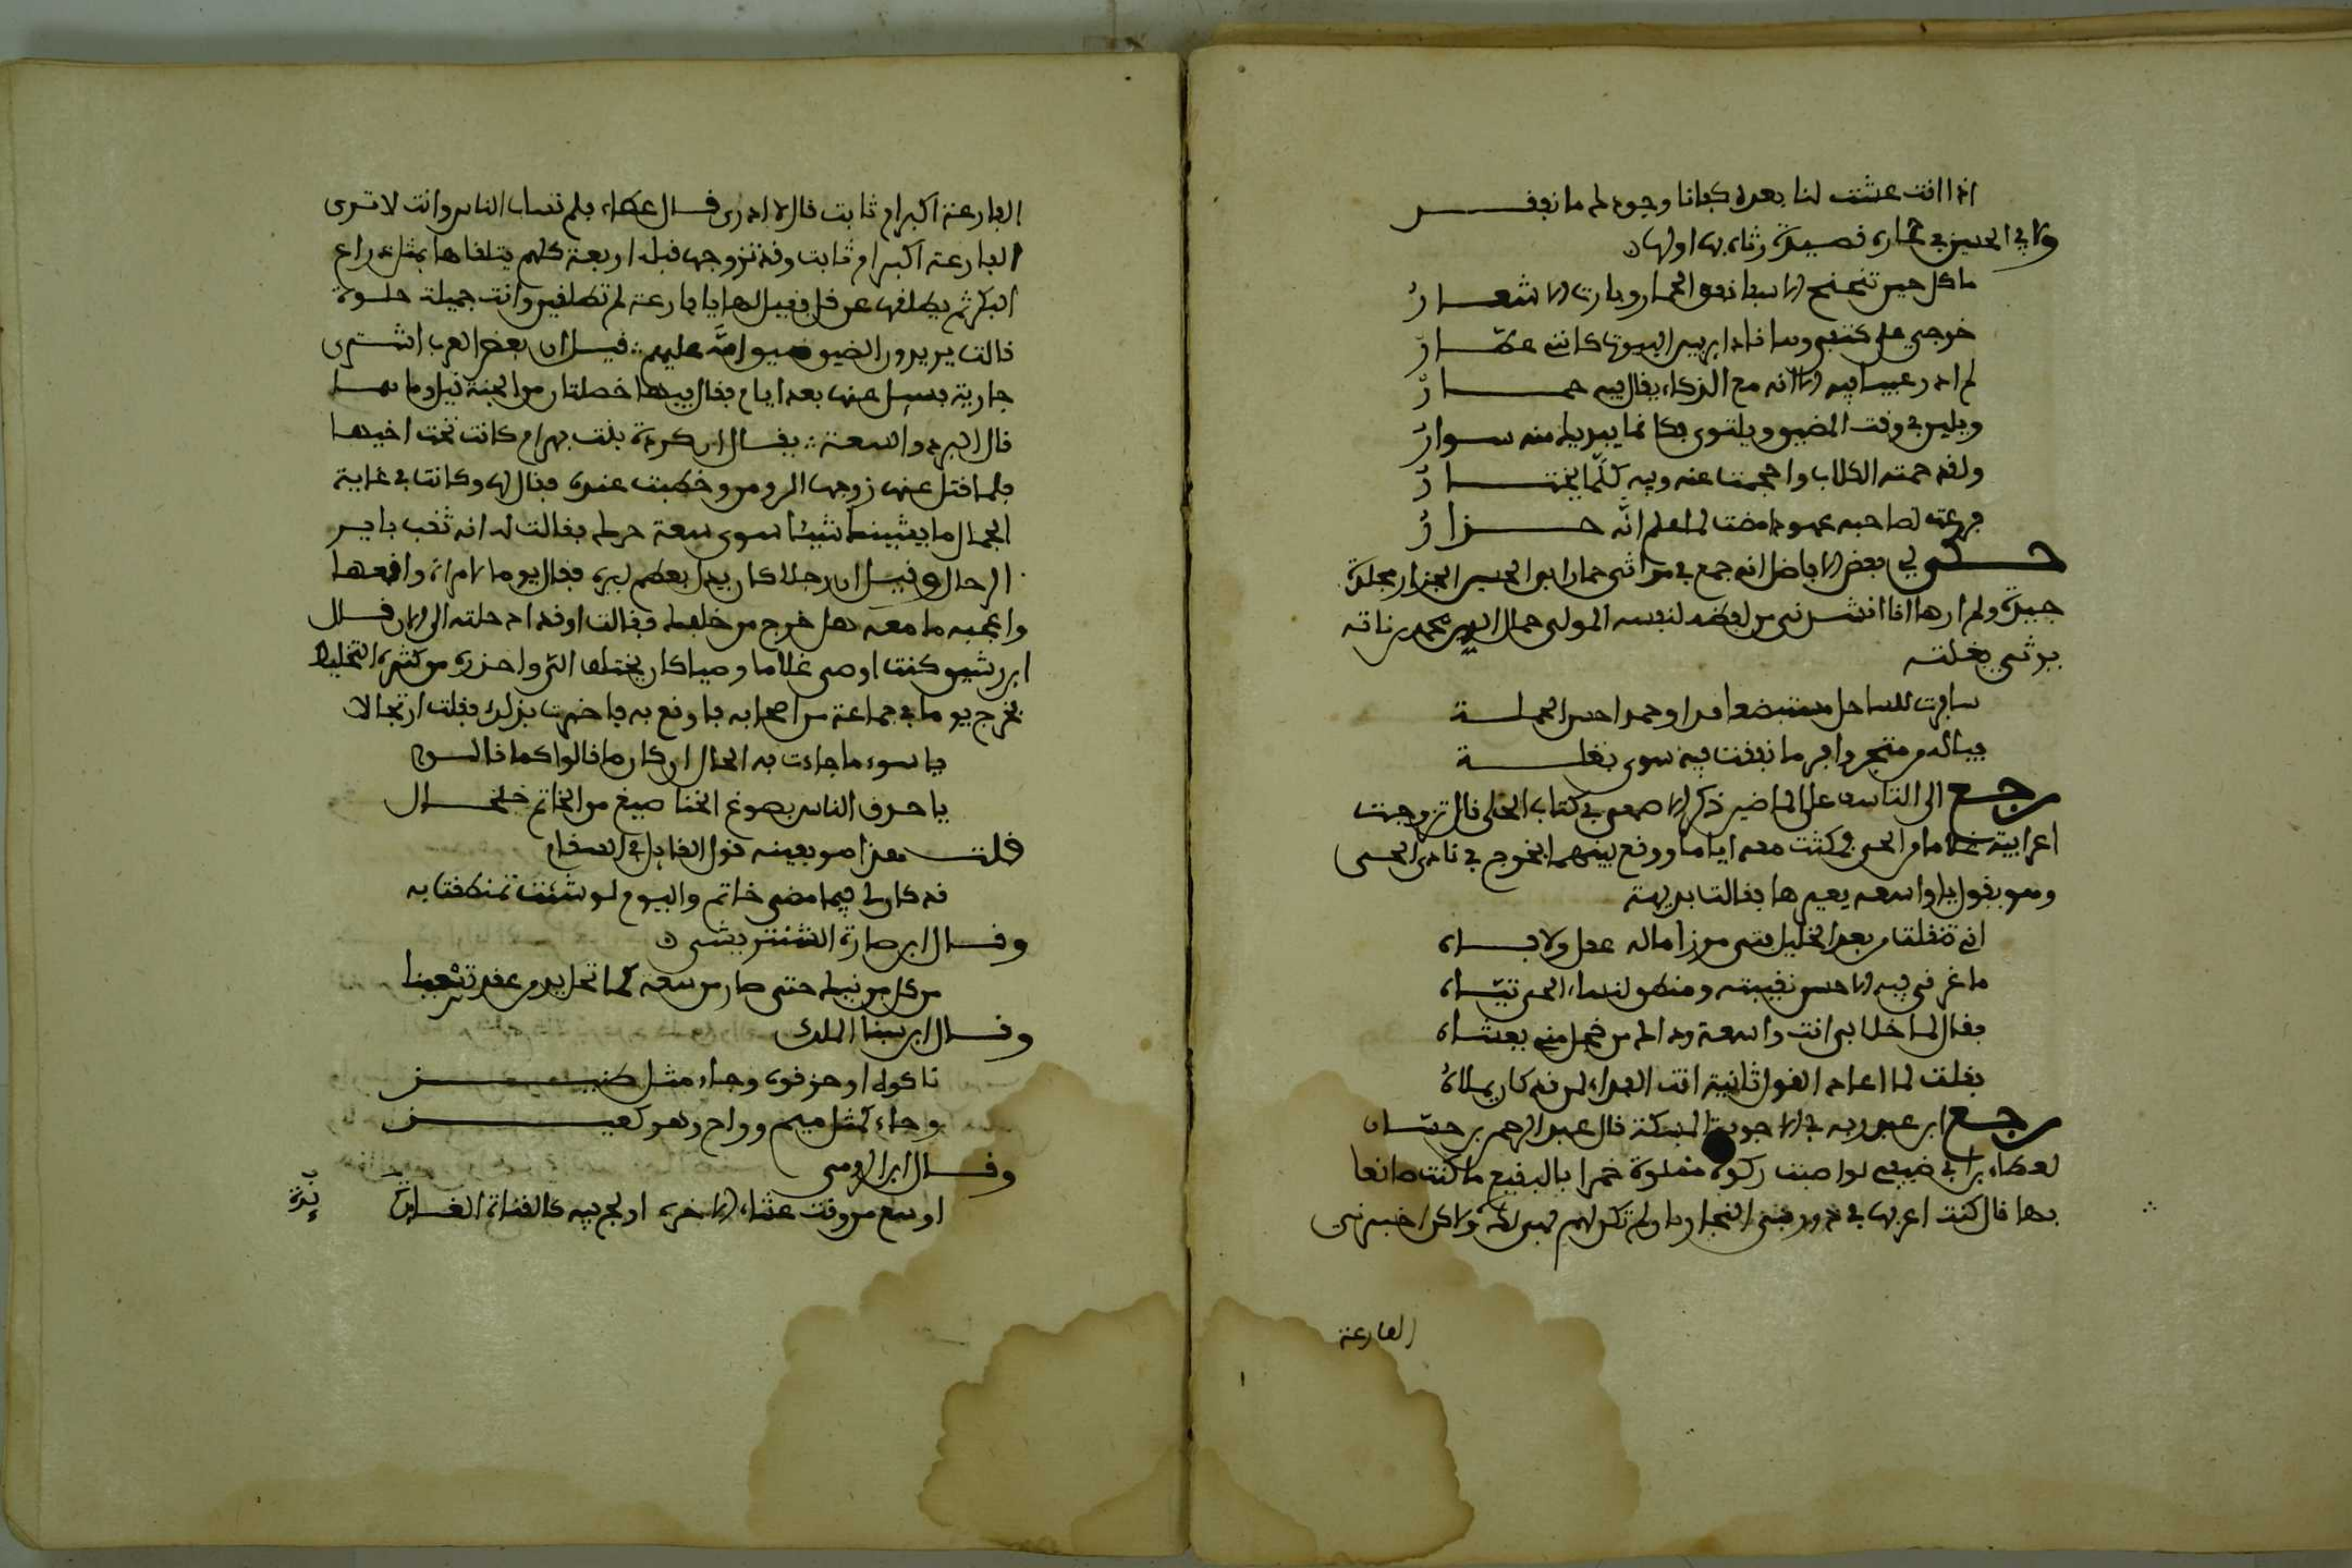 اذا انت عشت لنا بعده كفانا وجودك ما نفقد
ولابي الحسين في حماره قصيدة رثاه بها اولها
ما كل حين تنجح الاسفار نفق الحمار وبارت الاشعار
خرجي على كتفي وها انا دائر بين البيوت كانني عطار
لم ادر عيبا فيه الا انه مع الذكاء يقال فيه حمار
ويلين في وقت المضيق ويلتوي فكانما بيديك منه سوار
ولقد حمته الكلاب واحجمت عنه وفيه كلما يختار
فرعت لصاحبه عهودا مضت لما علم انه جزار
حكى لي بعض الافاضل انه جمع في مراثي حمار ابي الحسين الجزار مجلدة
جيدة ولم ارها انا انشدني من لفظه لنفسه المولى جمال الدين محمد بن نباتة
يرثي بغلته
سافرت للساحل مستبضعا وحمدا احسن الجملة
فياله من متجر وافر ما نفقت فيه سوى بغلة
رجع الى التاسف على الماضين ذكر الاصمعي في كتاب الحلى قال تزوجت
اعرابية غلاما من الحي فمكثت معه اياما ووقع بينهما فخرج في نادي الحي
وهو يقول يا واسعه يعيرها فقالت بديهة
اني تنقلت من بعد الخليل فتى مرزا ماله عقل ولا باه
ما غرني فيه الا حسن نقيبته ومنطق لنساء الحي تياه
فقال لما خلا بي انت واسعة وذاك من خجل مني يغشاه
فقلت لما اعاد القول ثانية انت الفداء لمن قد كان يملاه
رجع ابن عبد ربه في الاجوبة المسكتة قال عبد الرحمن بن حسان
لعطاء بن ابي صيفي لو اصبت ركوة مملوة خمرا بالبقيع ما كنت صانعا
بها قال كنت اعرفها في دور بني النجار فان لم تكن لهم فهي لك ولاكن اخبرني
الفارعة
الفارعة اكبر ام ثابت قال لا ادري قال عطاء فلم تساب الناس وانت لا تدري
الفارعة اكبر ام ثابت وقد تزوجها قبله اربعة كلهم يتلقاها بمثل ذراع
البكر ثم يطلقها عن قلى فقيل لها يا فارعة لم تطلقين وانت جميلة حلوة
قالت يريدون الضيق ضيق الله عليهم قيل ان بعض العرب اشترى
جارية فسيل عنها بعد ايام فقال فيها خصلتان من الجنة قيل وما هما
قال البرد والسعة يقال ان كردية بنت بهرام كانت تحت اخيها
فلما قتل عنها زوجها الرومي وخطبت عنده فنالها وكانت في غاية
الجمال ما يشينك شيئا سوى سعة حرك فقالت له انه ثقب باير
الرجال وقيل ان رجلا كان يدل بعظم ايره فقال يوما لامراة واقعها
واعجبه ما معه هل خرج من خلفك فقالت اوقد ادخلته الى الان قال
ابن رشيق كنت اوصي غلاما وضيا كان يختلف الي واحذره من كثرة التخليط
فخرج يوما في جماعة من اصحابه فاوقع به فاخبرت بذلك فقلت ارتجالا
يا سوء ما جاءت به الحال ان كان ما قالوا كما قالوا
يا حرف الناس بصوغ الخنا صيغ من الخاتم خلخال
قلت هذا هو بعينه قول القايل في السفام
قد كان لي فيما مضى خاتم واليوم لو شئت تمنطقتا به
وقال ابن صارة الشنتريني
من كل من نيك حتى صار من سعة
وقال ابن سنا الملك
ناكوه او حزفوه وجاء مثل كنيز
وجاء كمثل ميم وراح وهو كعين
وقال ابن الرومي
اوسع من وقت عشاء الاخره اولج فيه كالقناة الغابرة